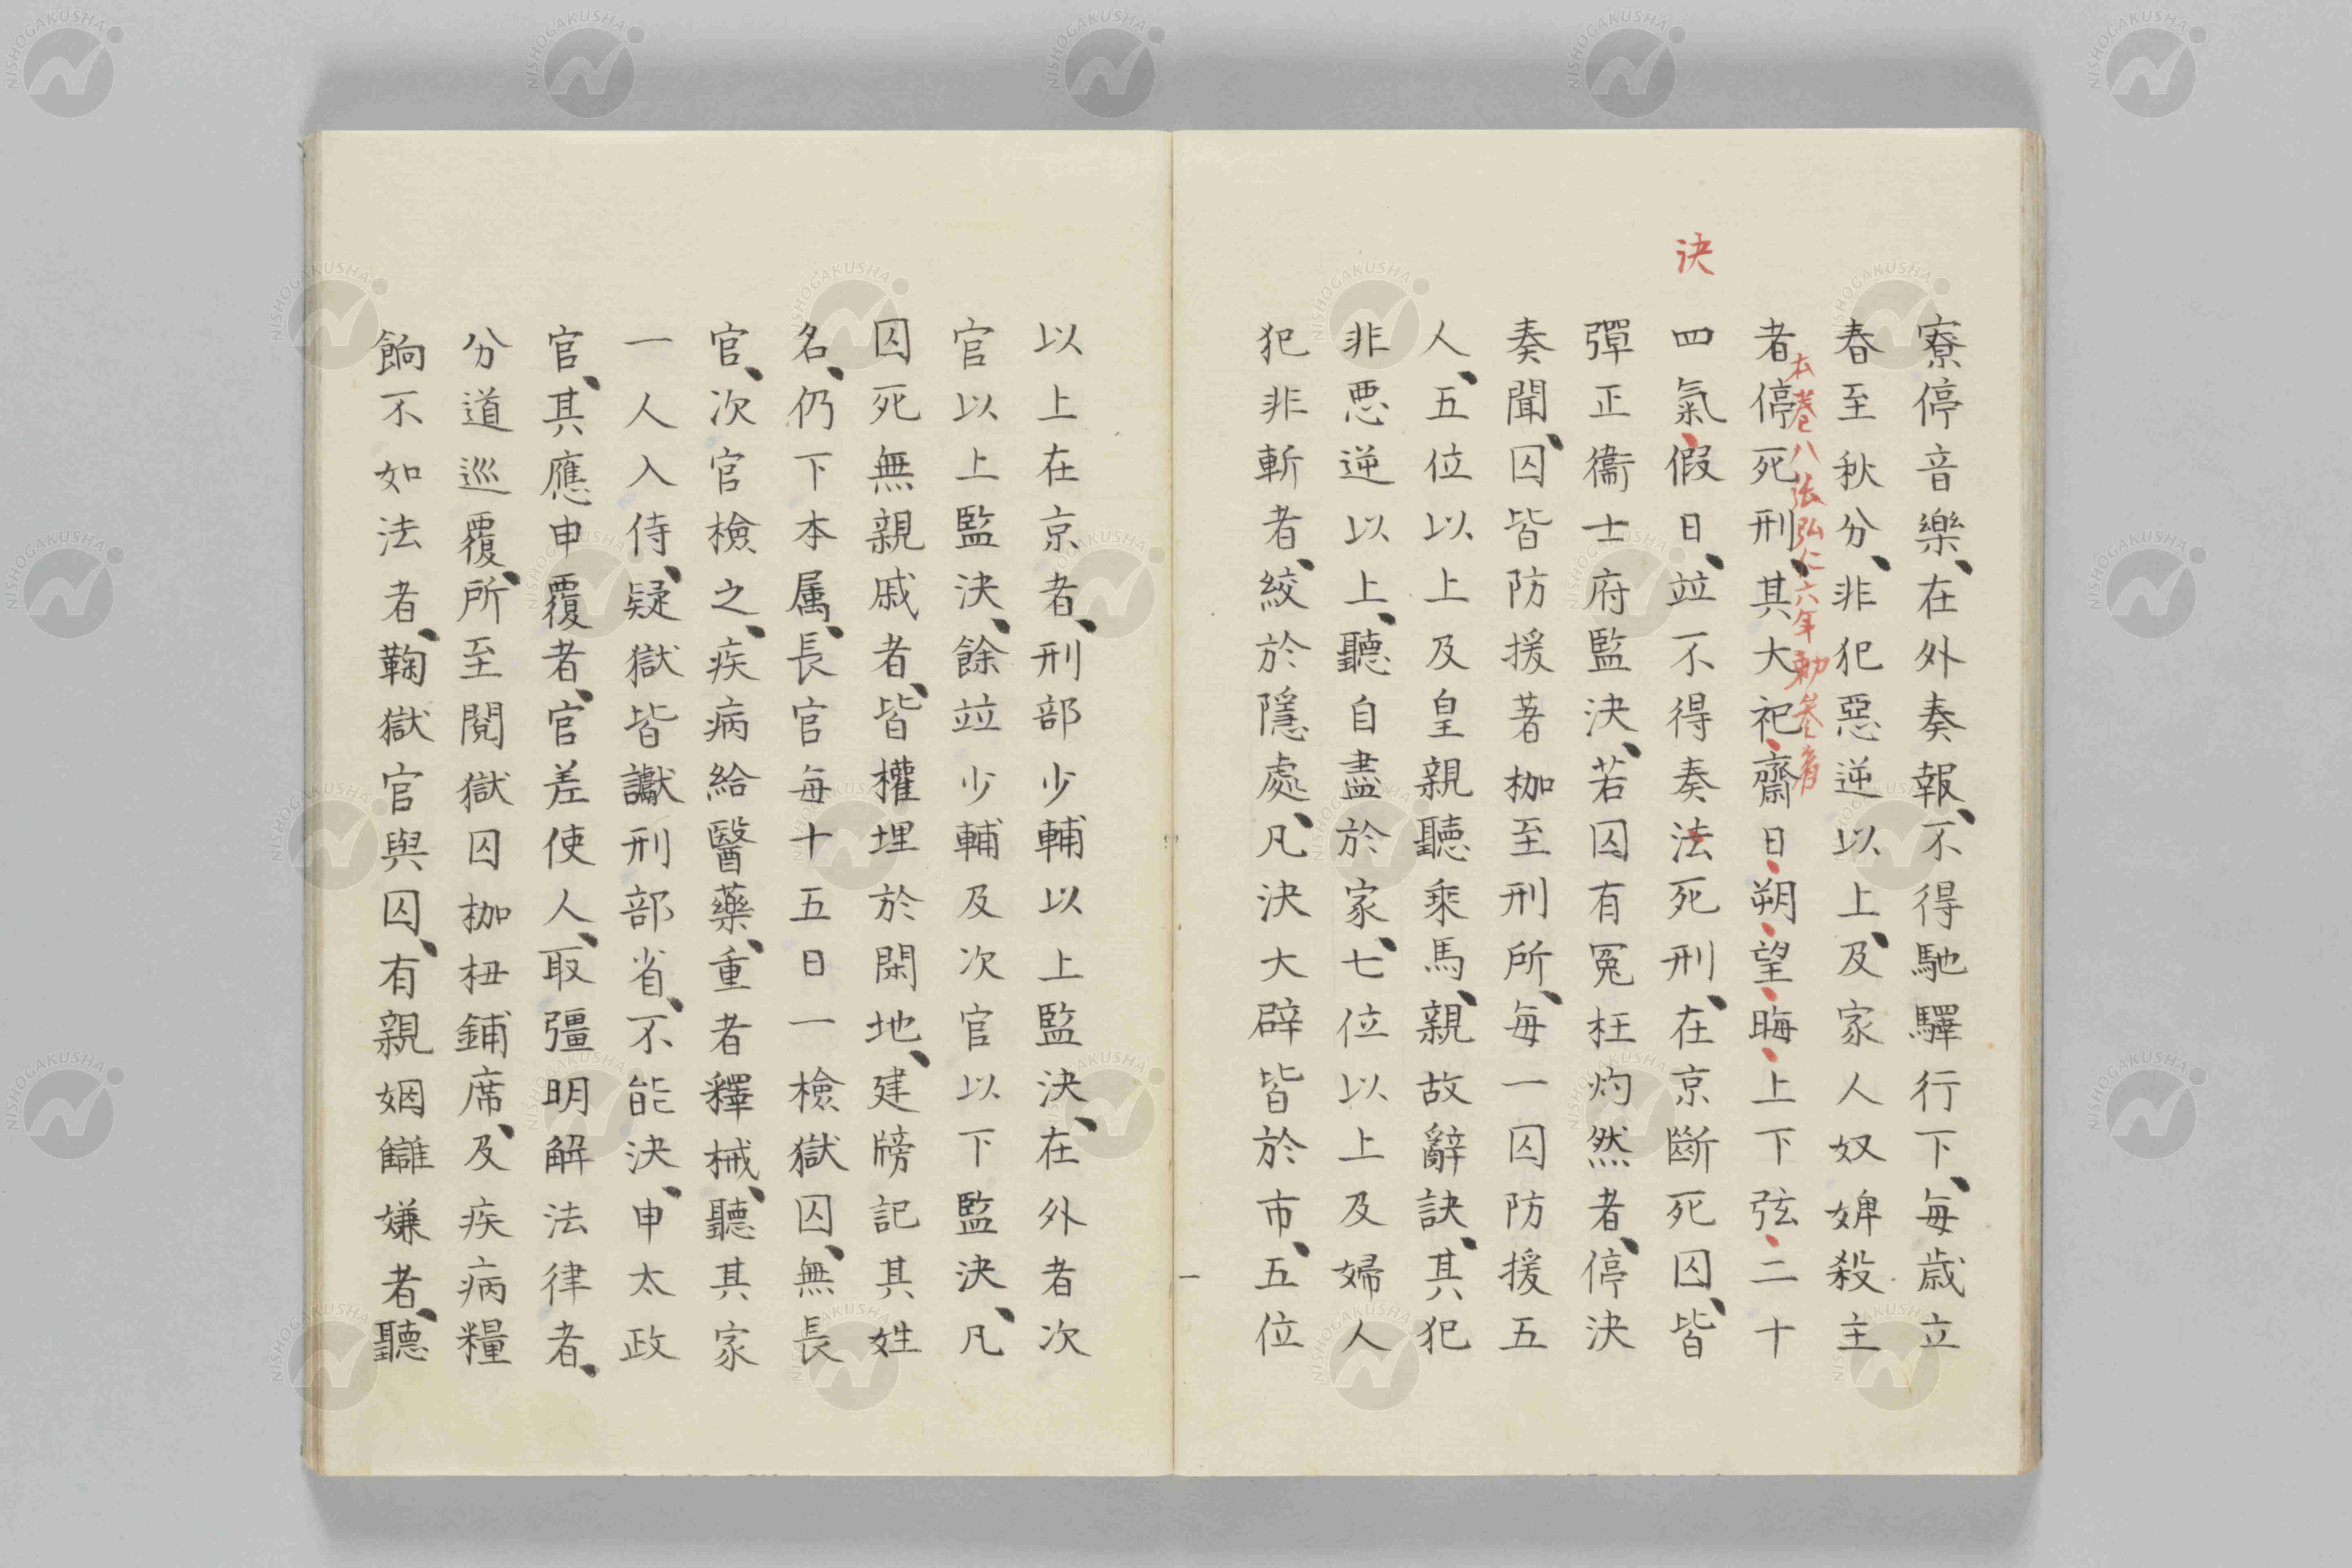 寮停音樂、在外奏報、不得馳驛行下、每歳立
春至秋分、非犯惡逆以上、及家人奴婢殺主
本巻八張弘仁六年勅参看
者停死刑、其大祀、齋日、朔、望、晦、上下弦、二十
決
四氣、假日、竝不得奏法死刑、在京斷死囚、皆
彈正衞士府監決、若囚有冤枉灼然者、停決
奏聞、囚皆防援著枷至刑所、每一囚防援五
人、五位以上及皇親聽乘馬、親故辭訣、其犯
非悪逆以上、聽自盡於家、七位以上及婦人
犯非斬者、絞於隱處、凡決大辟皆於市、五位
以上在京者、刑部少輔以上監決、在外者次
官以上監決、餘竝少輔及次官以下監決、凡
囚死無親戚者、皆權埋於閑地、建牓記其姓
名、仍下本属、長官每十五日一檢獄囚、無長
官、次官檢之、疾病給醫藥、重者釋械、聽其家
一人入侍、疑獄皆讞刑部省、不能決、申太政
官、其應申覆者、官差使人、取彊明解法律者、
分道巡覆、所至閲獄囚枷杻鋪席、及疾病糧
餉不如法者、鞠獄官與囚、有親姻讎嫌者、聽
NISHOGAKUSHA